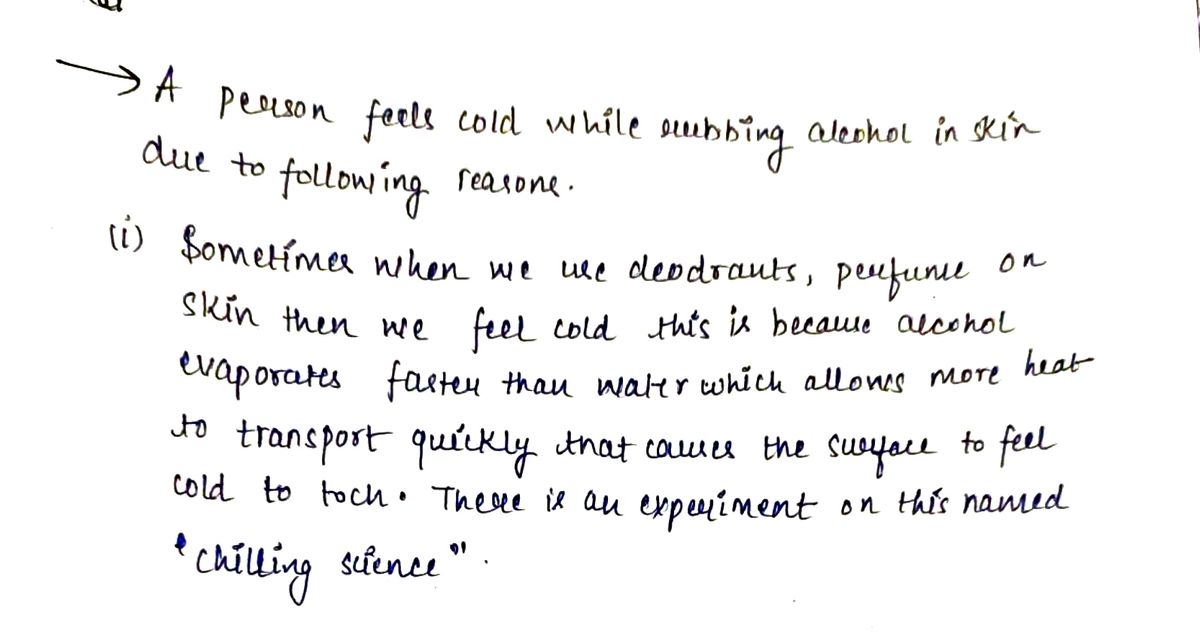 → A person feels cold while rubbing alcohol in skin
due to following reasons.
(i) Sometimes when we use deodrants, perfume on
skin then we feel cold this is because alcohol
evaporates faster than water which allows more heat
to transport quickly that causes the surface to feel
cold to toch. There is an experiment on this named
"chilling science".